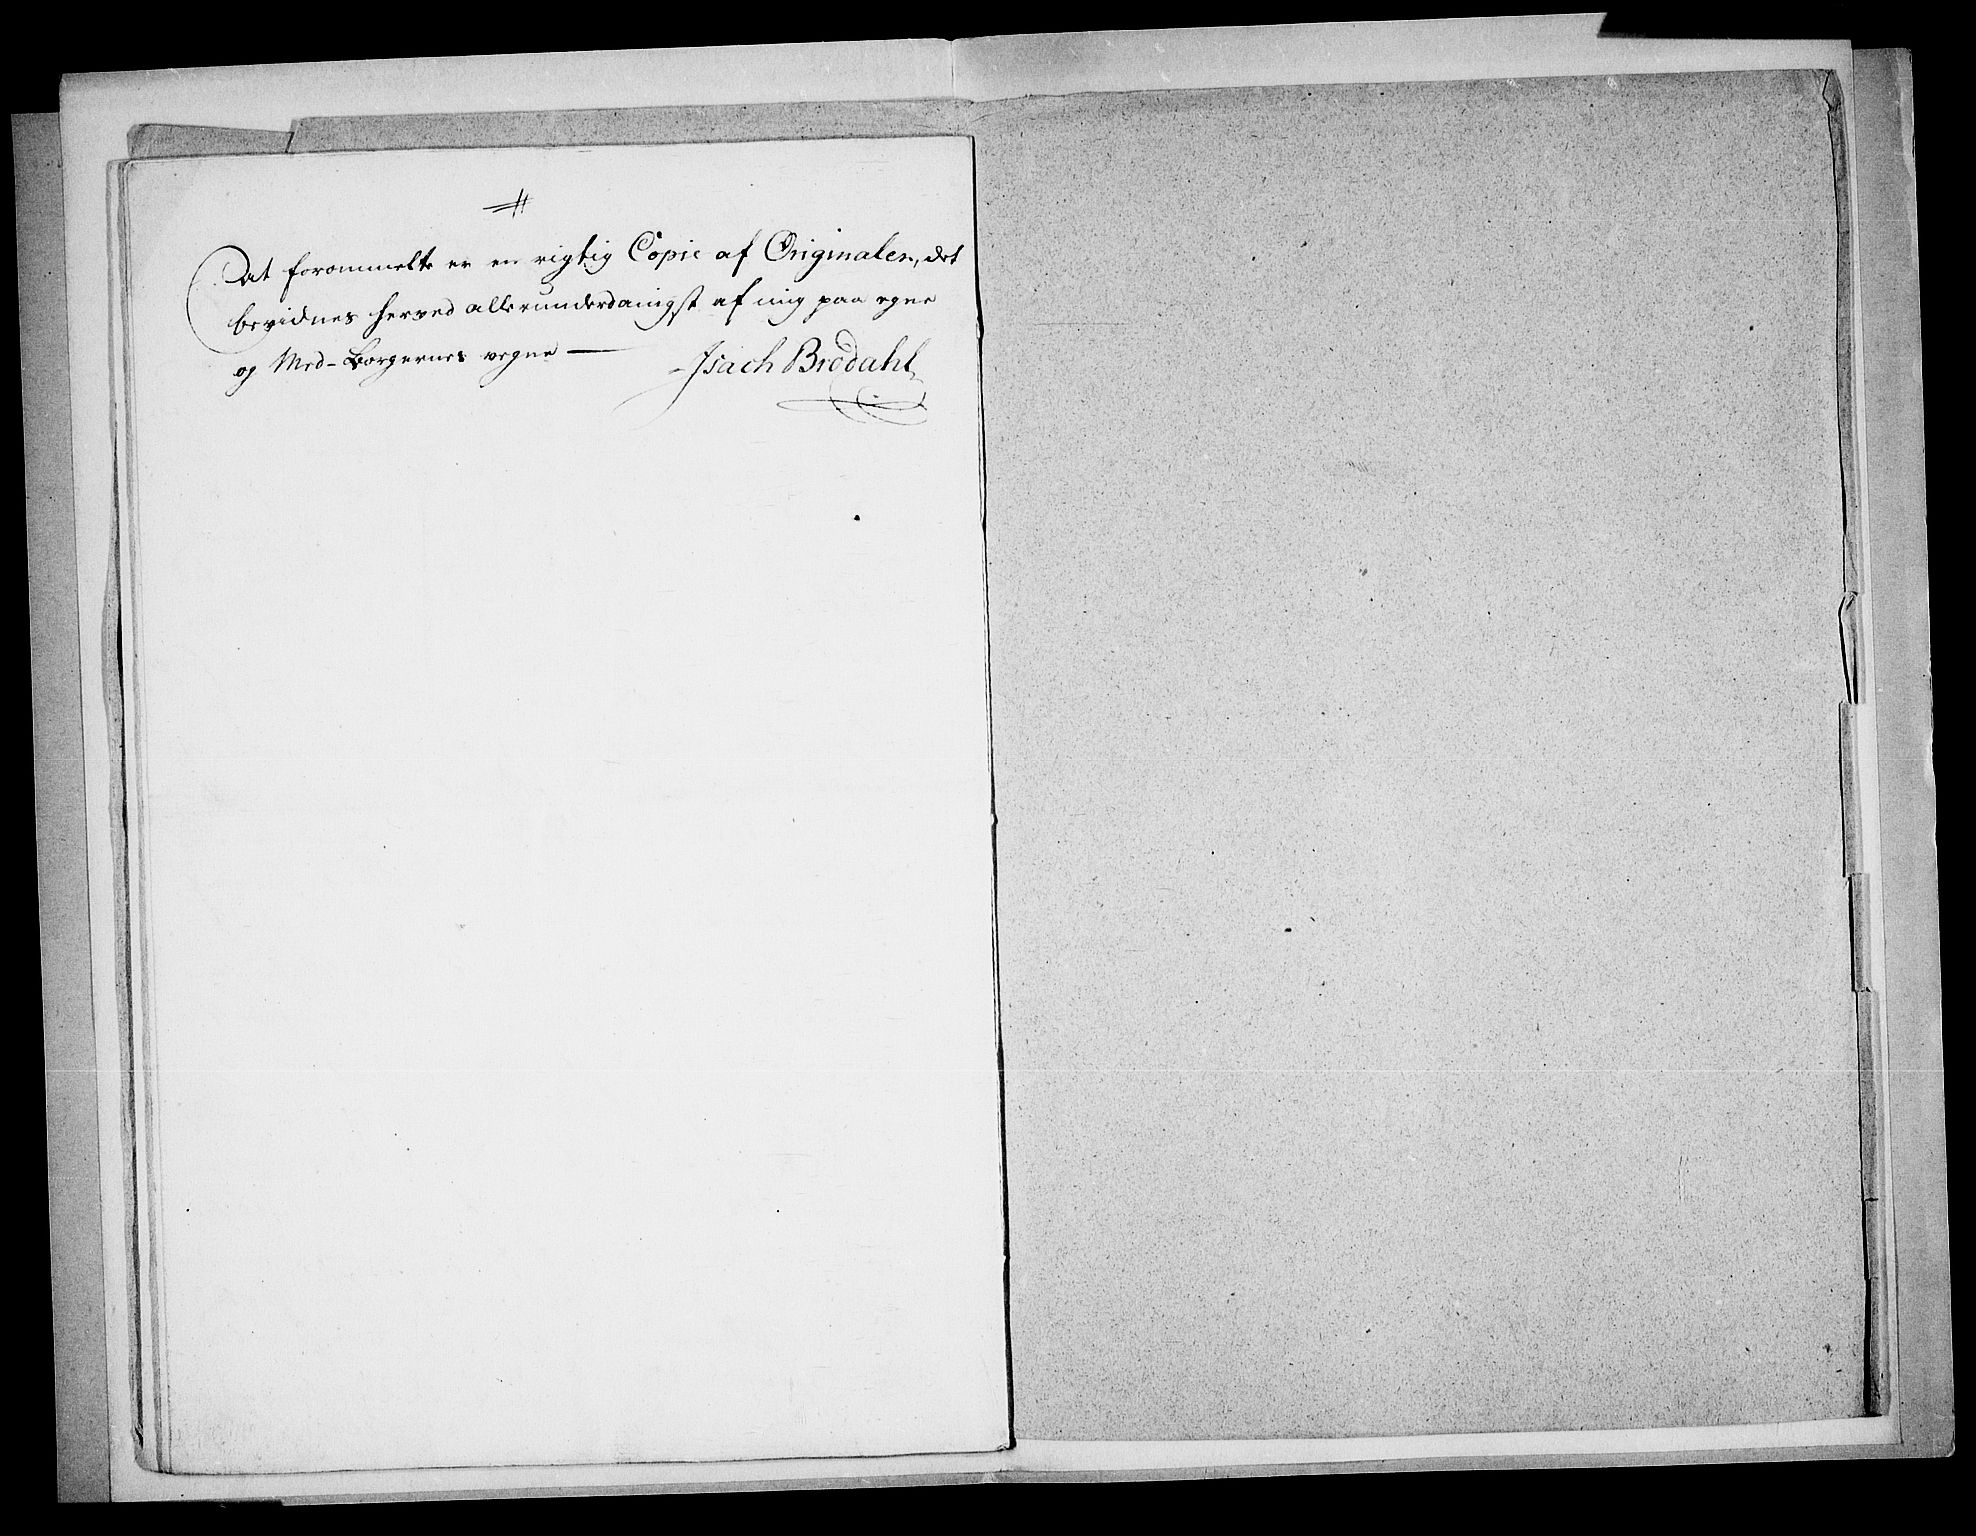 At forommelte er en rigtig Copie af Originalen, det
bevidnes herved allerunderdanigst af mig paa egne
og Med-Borgernes vegne —
Isach Brodahl